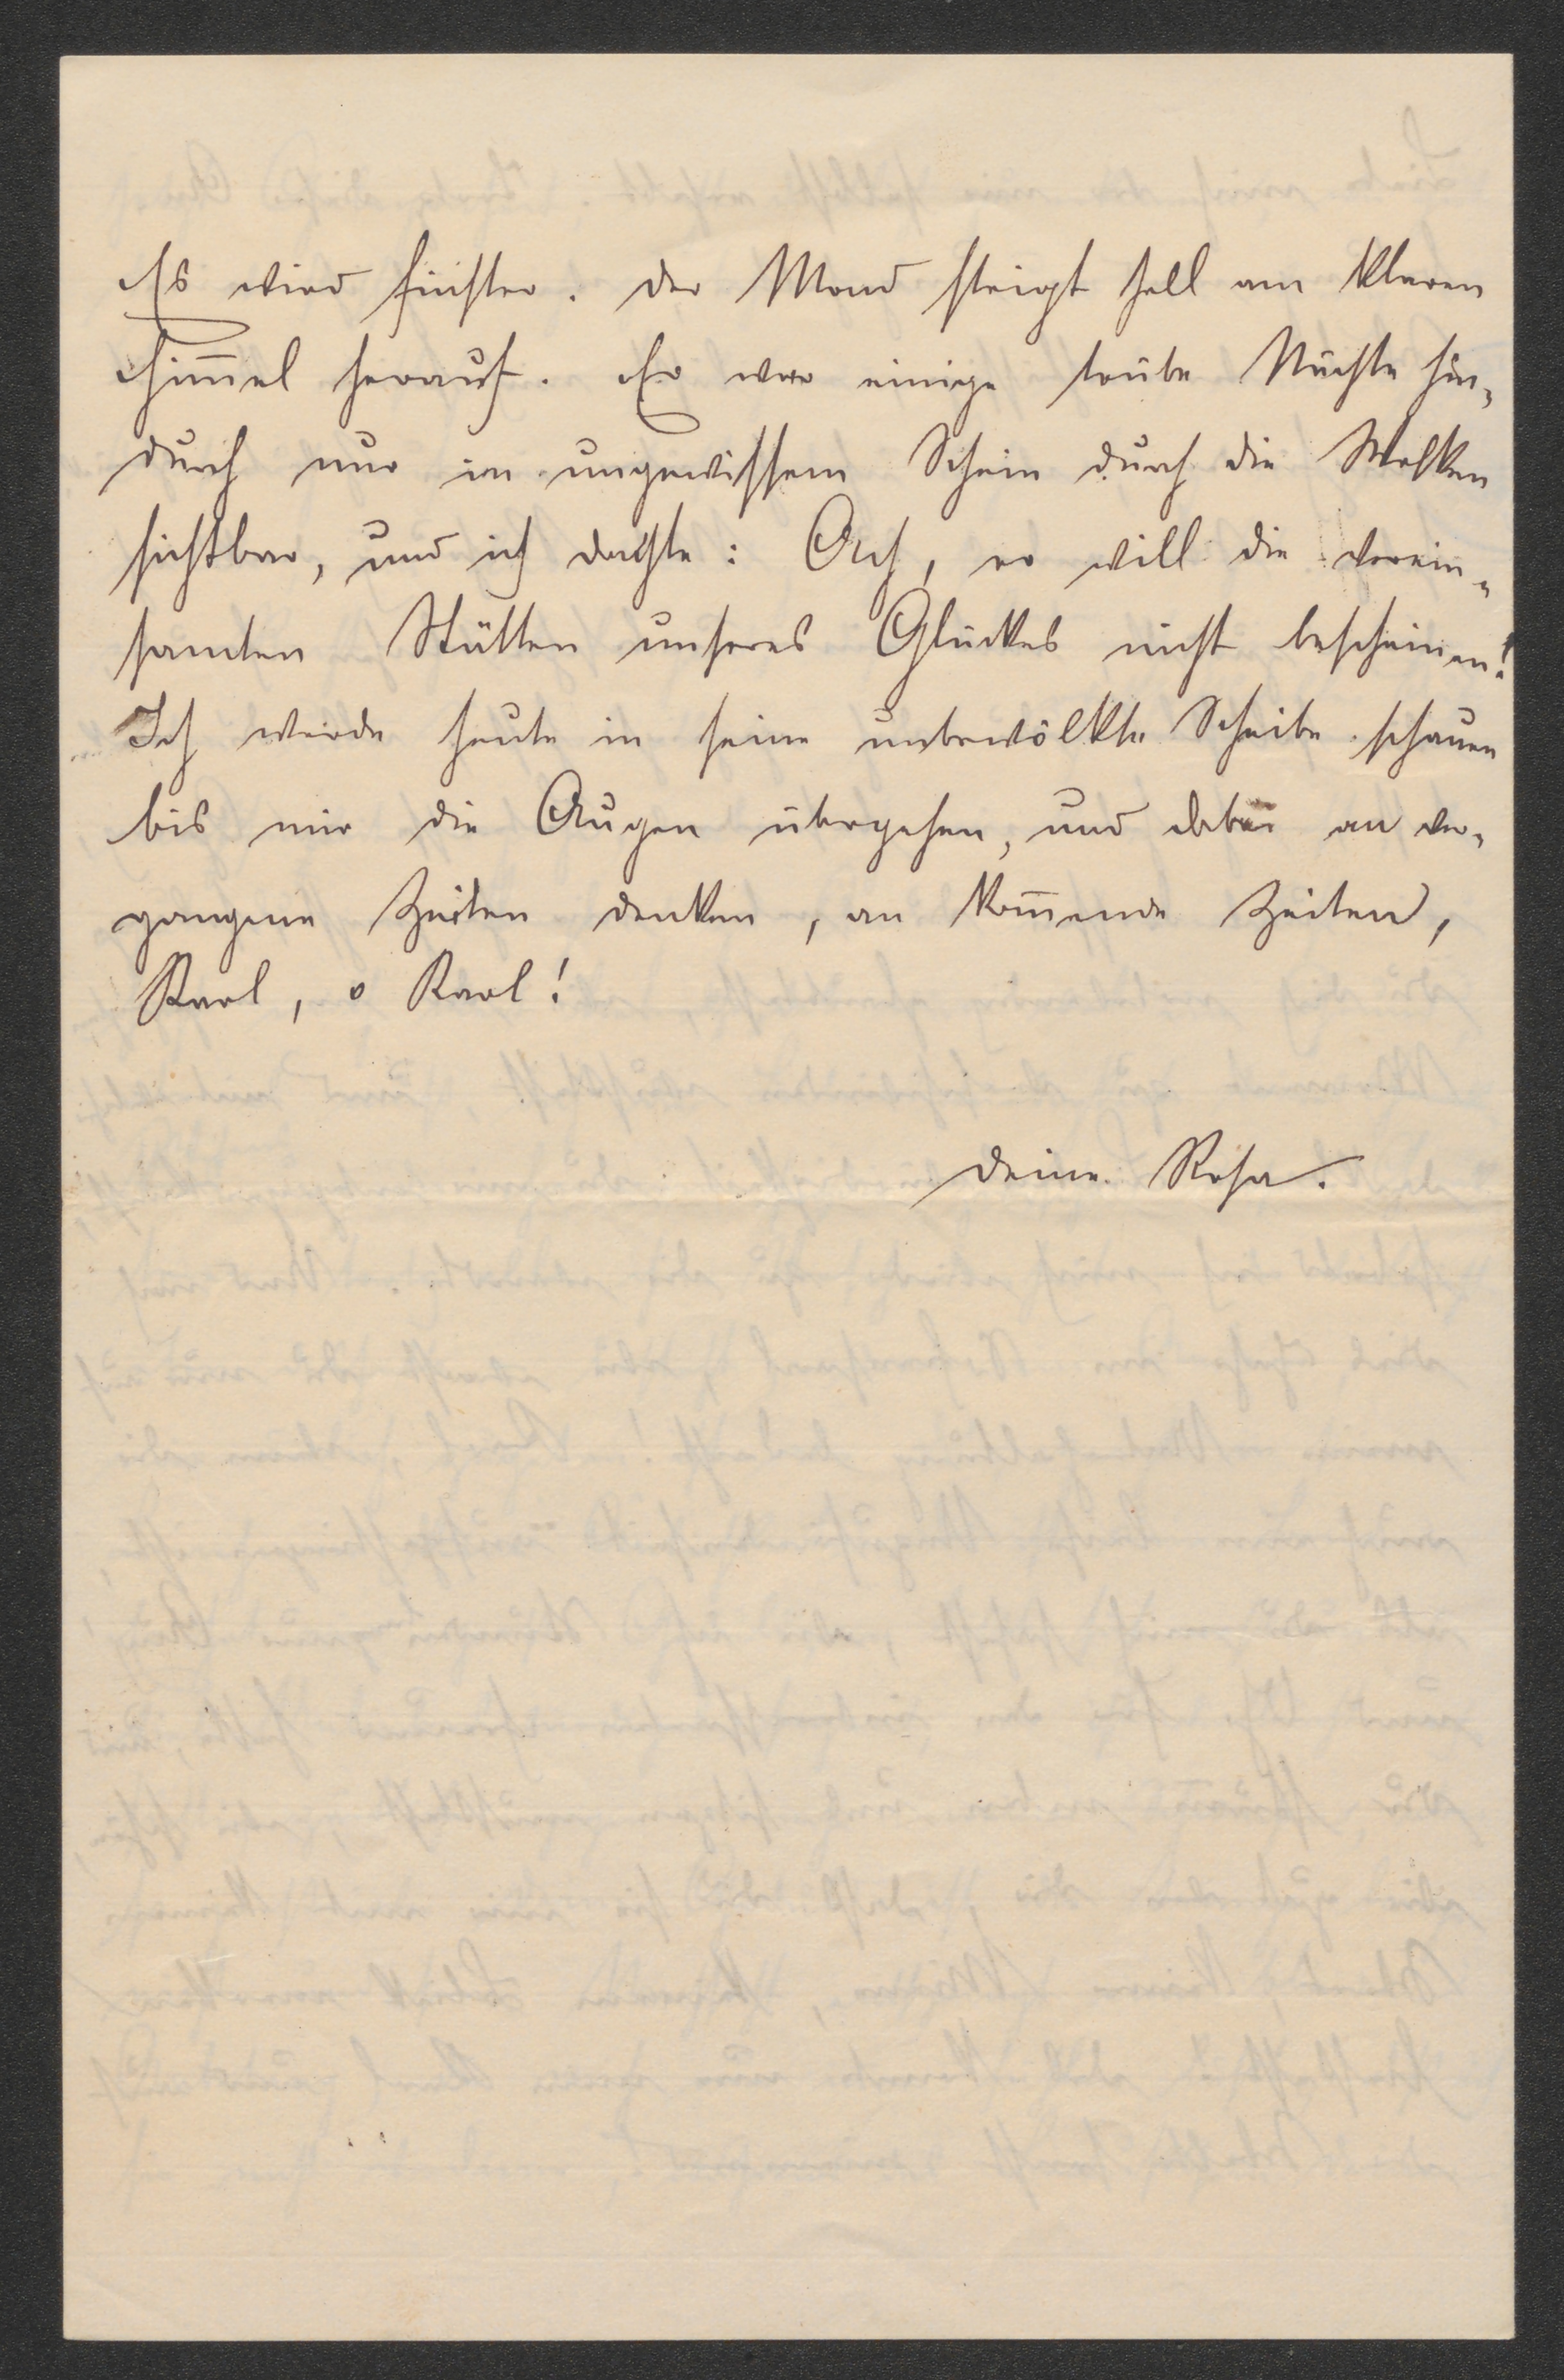 Es wird finster. Der Mond steigt hell am klaren
Him̅el herauf. Er war einige trübe Nächte hin-
durch nur in ungewissem Schein durch die Wolken
sichtbar, und ich dachte: Ach, er will die verein-
samten Stätten unseres Glückes nicht bescheinen!
Ich werde heute in seine unbewölkte Scheibe schauen
bis mir die Augen übergehen, und dabei an ver-
gangene Zeiten denken, an kom̅ende Zeiten,
Karl, o Karl!
Deine Rosa.